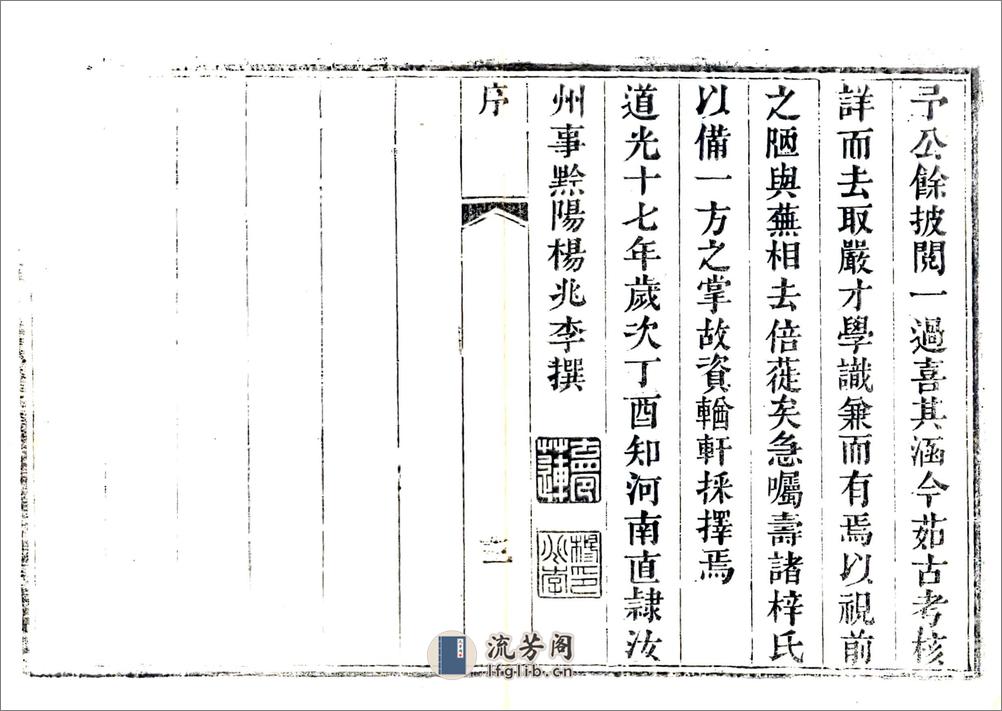 予公餘披閱一過喜其涵今茹古考核
詳而去取嚴才學識兼而有焉以視前
之陋與蕪相去倍蓰矣急囑壽諸梓氏
以備一方之掌故資輶軒採擇焉
道光十七年歲次丁酉知河南直隸汝
州事黔陽楊兆李撰
序
三
流芳阁
lfglib.cn